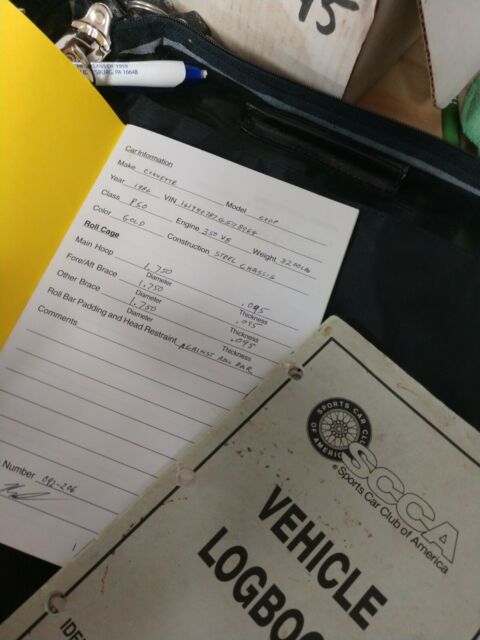 95
CLASS OF 1959
BURG, PA 16648
Car Information
Make CORVETTE Model COUP
Year 1986 VIN
Class P50 Engine 350 V8 Weight 3200 Lb
Color GOLD Construction STEEL CHASSIS
Roll Cage
Main Hoop 1.750 .095
Diameter Thickness
Fore/Aft Brace 1.750 .095
Diameter Thickness
Other Brace 1.750 .095
Diameter Thickness
Roll Bar Padding and Head Restraint AGAINST ROLL BAR
Comments
Number 092-206
1
SPORTS CAR CLUB OF AMERICA
SCCA
® Sports Car Club of America
VEHICLE
LOGBOO
IDE